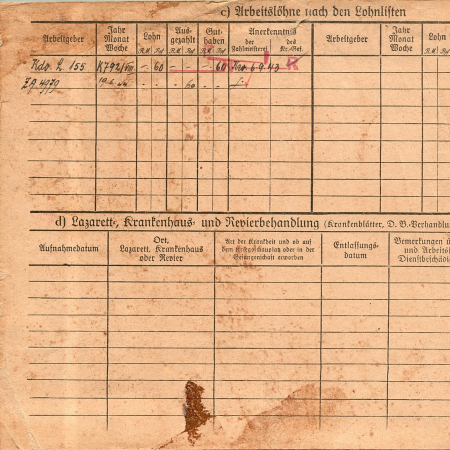 c) Arbeitslöhne nach den Lohnlisten
Arbeitgeber
Jahr
Monat
Woche
Lohn
R.M. Pf.
Aus-
gezahlt
R.M. Pf.
Gut-
haben
R.M. Pf.
Anerkenntnis
der
Zahlmeisterei
des
Kr.-Gef.
Arbeitgeber
Jahr
Monat
Woche
Lohn
R.M. Pf.
Kdo. L. 155
- 60 - - - 60
6.9.43
d) Lazarett-, Krankenhaus- und Revierbehandlung (Krankenblätter, D. B.-Verhandlu
Aufnahmedatum
Ort,
Lazarett, Krankenhaus
oder Revier
Art der Krankheit und ob auf
dem Kriegsschauplatz oder in der
Gefangenschaft erworben
Entlassungs-
datum
Bemerkungen ü
und Arbeits
Dienstbeschädi